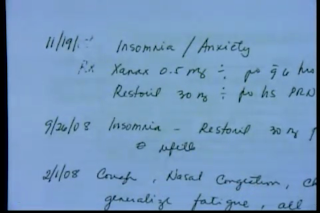 11/19/ Insomnia / Anxiety
Rx Xanax 0.5 mg ÷ po q 6 hrs
Restoril 30 mg ÷ po hs PRN
9/26/08 Insomnia - Restoril 30 mg
refill
2/1/08 Cough, Nasal Congestion,
generalize fatigue, all